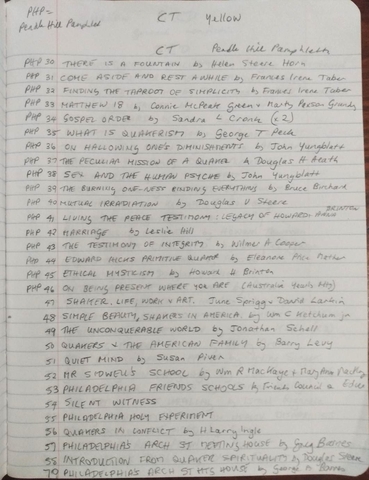 PHP =
Pendle Hill Pamphlet
CT Yellow
CT Pendle Hill Pamphlets
PHP 30 THERE IS A FOUNTAIN by Helen Steere Horn
PHP 31 COME ASIDE AND REST AWHILE by Frances Irene Taber
PHP 32 FINDING THE TAPROOT OF SIMPLICITY by Frances Irene Taber
PHP 33 MATTHEW 18 by Connie McPeak Green & Marty Paxson Grundy
PHP 34 GOSPEL ORDER by Sandra L Cronk (x2)
PHP 35 WHAT IS QUAKERISM by George T Peck
PHP 36 ON HALLOWING ONE'S DIMINISHMENTS by John Yungblatt
PHP 37 THE PECULIAR MISSION OF A QUAKER by Douglas H
PHP 38 SEX AND THE HUMAN PSYCHE by John Yungblatt
PHP 39 THE BURNING ONE-NESS BINDING EVERYTHING by Bruce Birchard
PHP 40 MUTUAL IRRADIATION by Douglas V Steere
PHP 41 LIVING THE PEACE TESTIMONY: LEGACY OF HOWARD & ANNA BRINTON
PHP 42 MARRIAGE by Leslie Hill
PHP 43 THE TESTIMONY OF INTEGRITY by Wilmer A Cooper
PHP 44 EDWARD HICKS PRIMITIVE QUAKER by Eleanore Price Mather
PHP 45 ETHICAL MYSTICISM by Howard H Brinton
PHP 46 ON BEING PRESENT WHERE YOU ARE (Australia Yearly Mtg)
47 SHAKER, LIFE, WORK & ART. June Sprigg & David Larkin
48 SIMPLE BEAUTY, SHAKERS IN AMERICA. by Wm C Ketchum jr
49 THE UNCONQUERABLE WORLD by Jonathan Schell
50 QUAKERS & THE AMERICAN FAMILY by Barry Levy
51 QUIET MIND by Susan
52 MR SIDWELL'S SCHOOL by Wm R MacKaye & MaryAnn
53 PHILADELPHIA FRIENDS SCHOOLS by Friends Council on Educ
54 SILENT WITNESS
55 PHILADELPHIA HOLY EXPERIMENT
56 QUAKERS IN CONFLICT by H Larry Ingle
57 PHILADELPHIA'S ARCH ST MEETING HOUSE by Greg Barnes
58 INTRODUCTION FROM QUAKER SPIRITUALITY by Douglas Steere
79 PHILADELPHIA'S ARCH ST MTG HOUSE by Barnes